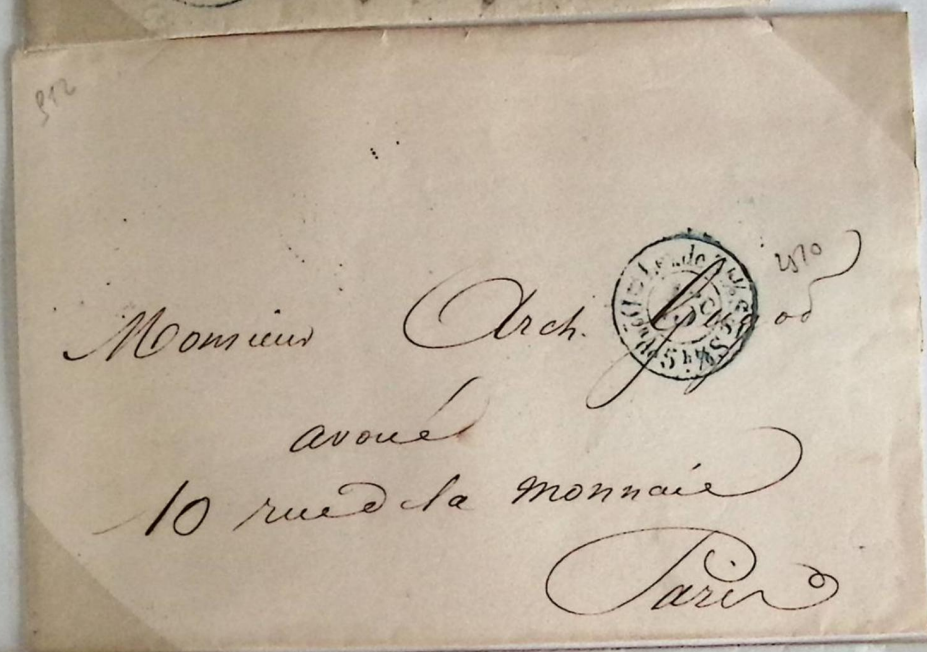 912
2510
Monsieur Arch.
avoué
10 rue de la monnaie
Paris